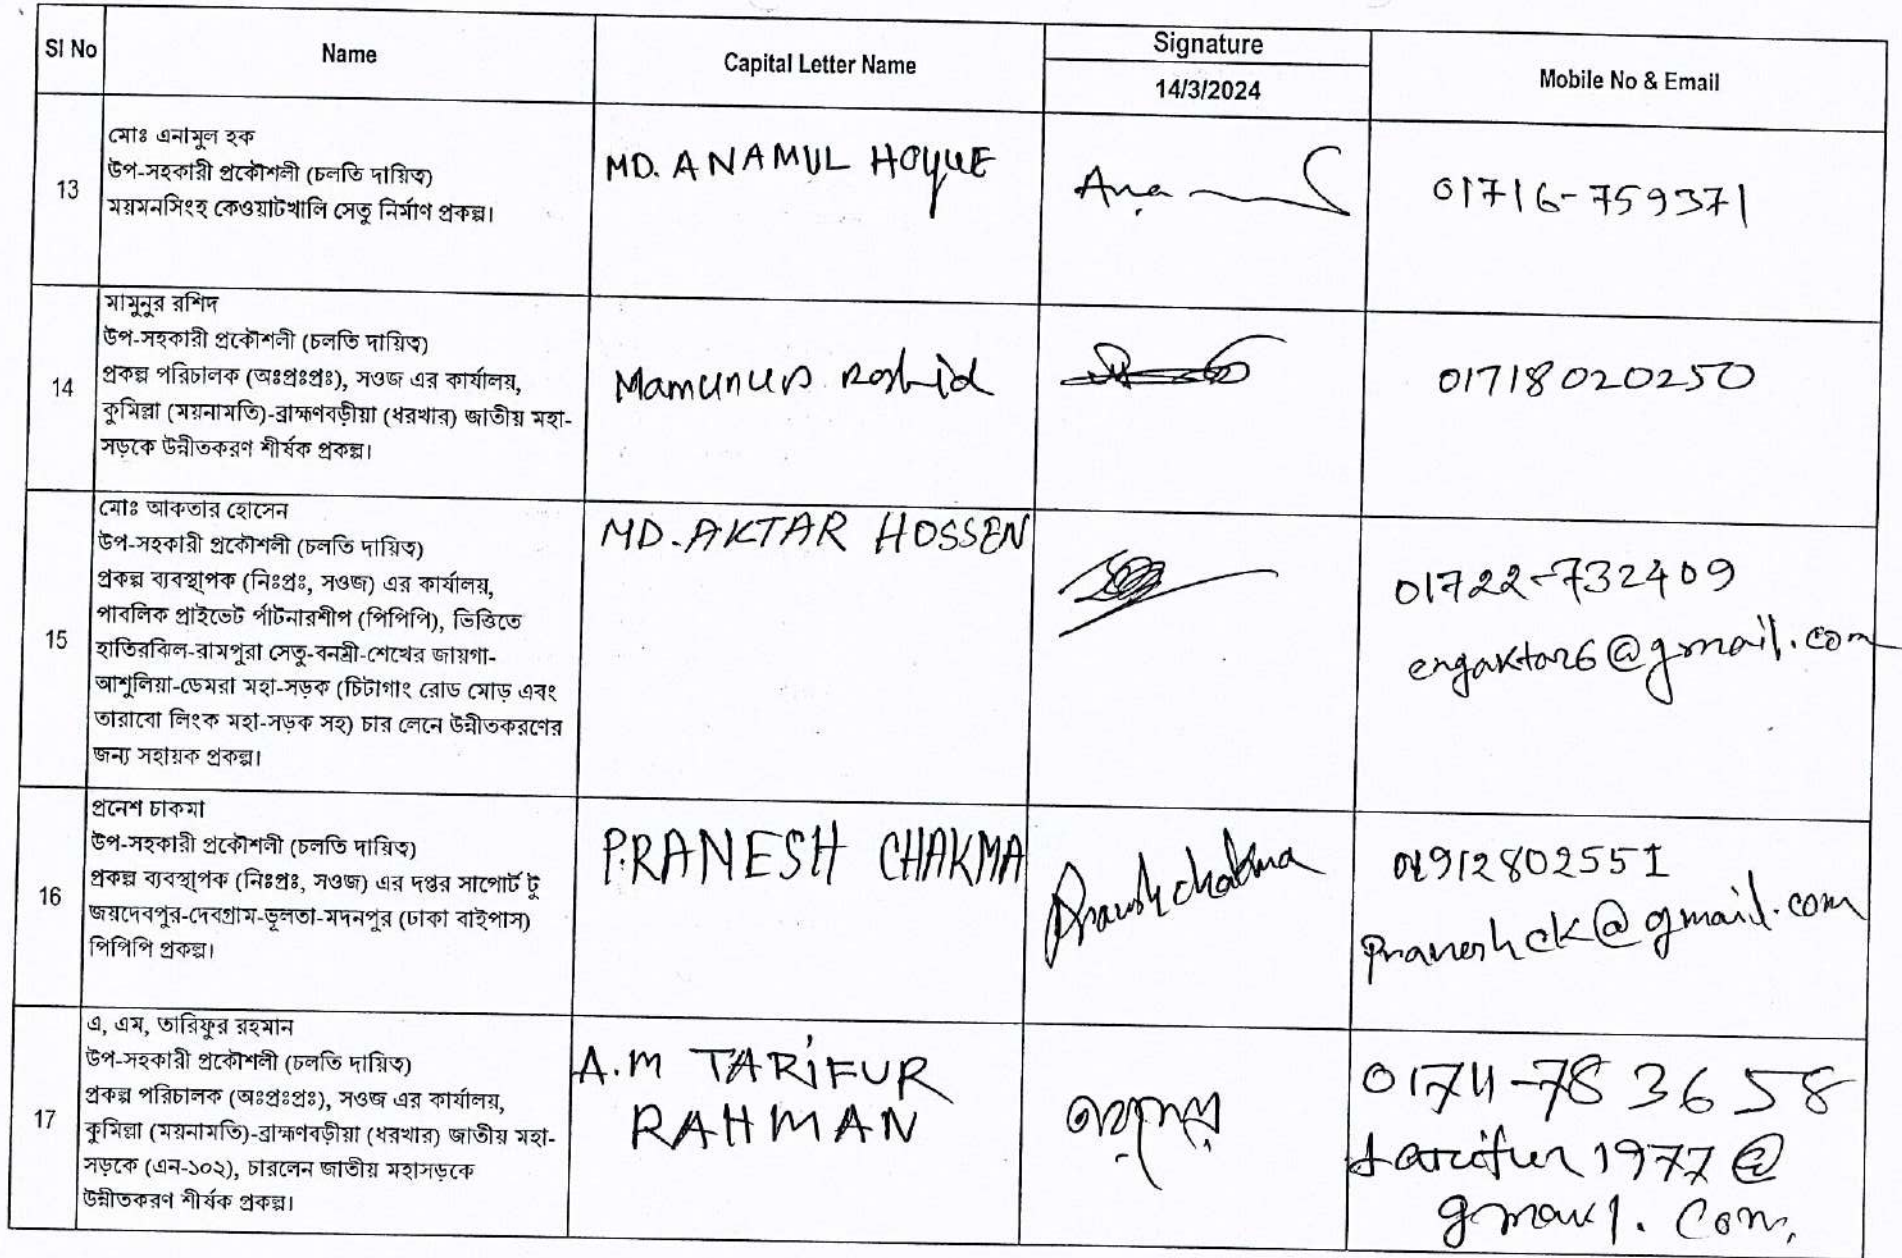 Sl No
Name
Capital Letter Name
Signature
14/3/2024
Mobile No & Email
13
মোঃ এনামুল হক
উপ-সহকারী প্রকৌশলী (চলতি দায়িত্ব)
ময়মনসিংহ কেওয়াটখালি সেতু নির্মাণ প্রকল্প।
MD. ANAMUL HOQUE
01716-759371
14
মামুনুর রশিদ
উপ-সহকারী প্রকৌশলী (চলতি দায়িত্ব)
প্রকল্প পরিচালক (অঃপ্রঃপ্রঃ), সওজ এর কার্যালয়,
কুমিল্লা (ময়নামতি)-ব্রাহ্মণবড়ীয়া (ধরখার) জাতীয় মহা-
সড়কে উন্নীতকরণ শীর্ষক প্রকল্প।
Mamunur Roshid
01718020250
15
মোঃ আকতার হোসেন
উপ-সহকারী প্রকৌশলী (চলতি দায়িত্ব)
প্রকল্প ব্যবস্থাপক (নিঃপ্রঃ, সওজ) এর কার্যালয়,
পাবলিক প্রাইভেট র্পাটনারশীপ (পিপিপি), ভিত্তিতে
হাতিরঝিল-রামপুরা সেতু-বনশ্রী-শেখের জায়গা-
আশুলিয়া-ডেমরা মহা-সড়ক (চিটাগাং রোড মোড় এবং
তারাবো লিংক মহা-সড়ক সহ) চার লেনে উন্নীতকরণের
জন্য সহায়ক প্রকল্প।
MD. AKTAR HOSSEN
01722-732409
engaktar6@gmail.com
16
প্রনেশ চাকমা
উপ-সহকারী প্রকৌশলী (চলতি দায়িত্ব)
প্রকল্প ব্যবস্থাপক (নিঃপ্রঃ, সওজ) এর দপ্তর সাপোর্ট টু
জয়দেবপুর-দেবগ্রাম-ভূলতা-মদনপুর (ঢাকা বাইপাস)
পিপিপি প্রকল্প।
PRANESH CHAKMA
Pranesh chakma
01912802551
praneshck@gmail.com
17
এ, এম, তারিফুর রহমান
উপ-সহকারী প্রকৌশলী (চলতি দায়িত্ব)
প্রকল্প পরিচালক (অঃপ্রঃপ্রঃ), সওজ এর কার্যালয়,
কুমিল্লা (ময়নামতি)-ব্রাহ্মণবড়ীয়া (ধরখার) জাতীয় মহা-
সড়কে (এন-১০২), চারলেন জাতীয় মহাসড়কে
উন্নীতকরণ শীর্ষক প্রকল্প।
A.M TARIFUR
RAHMAN
01711-783658
tarifur1977@
gmail.com,